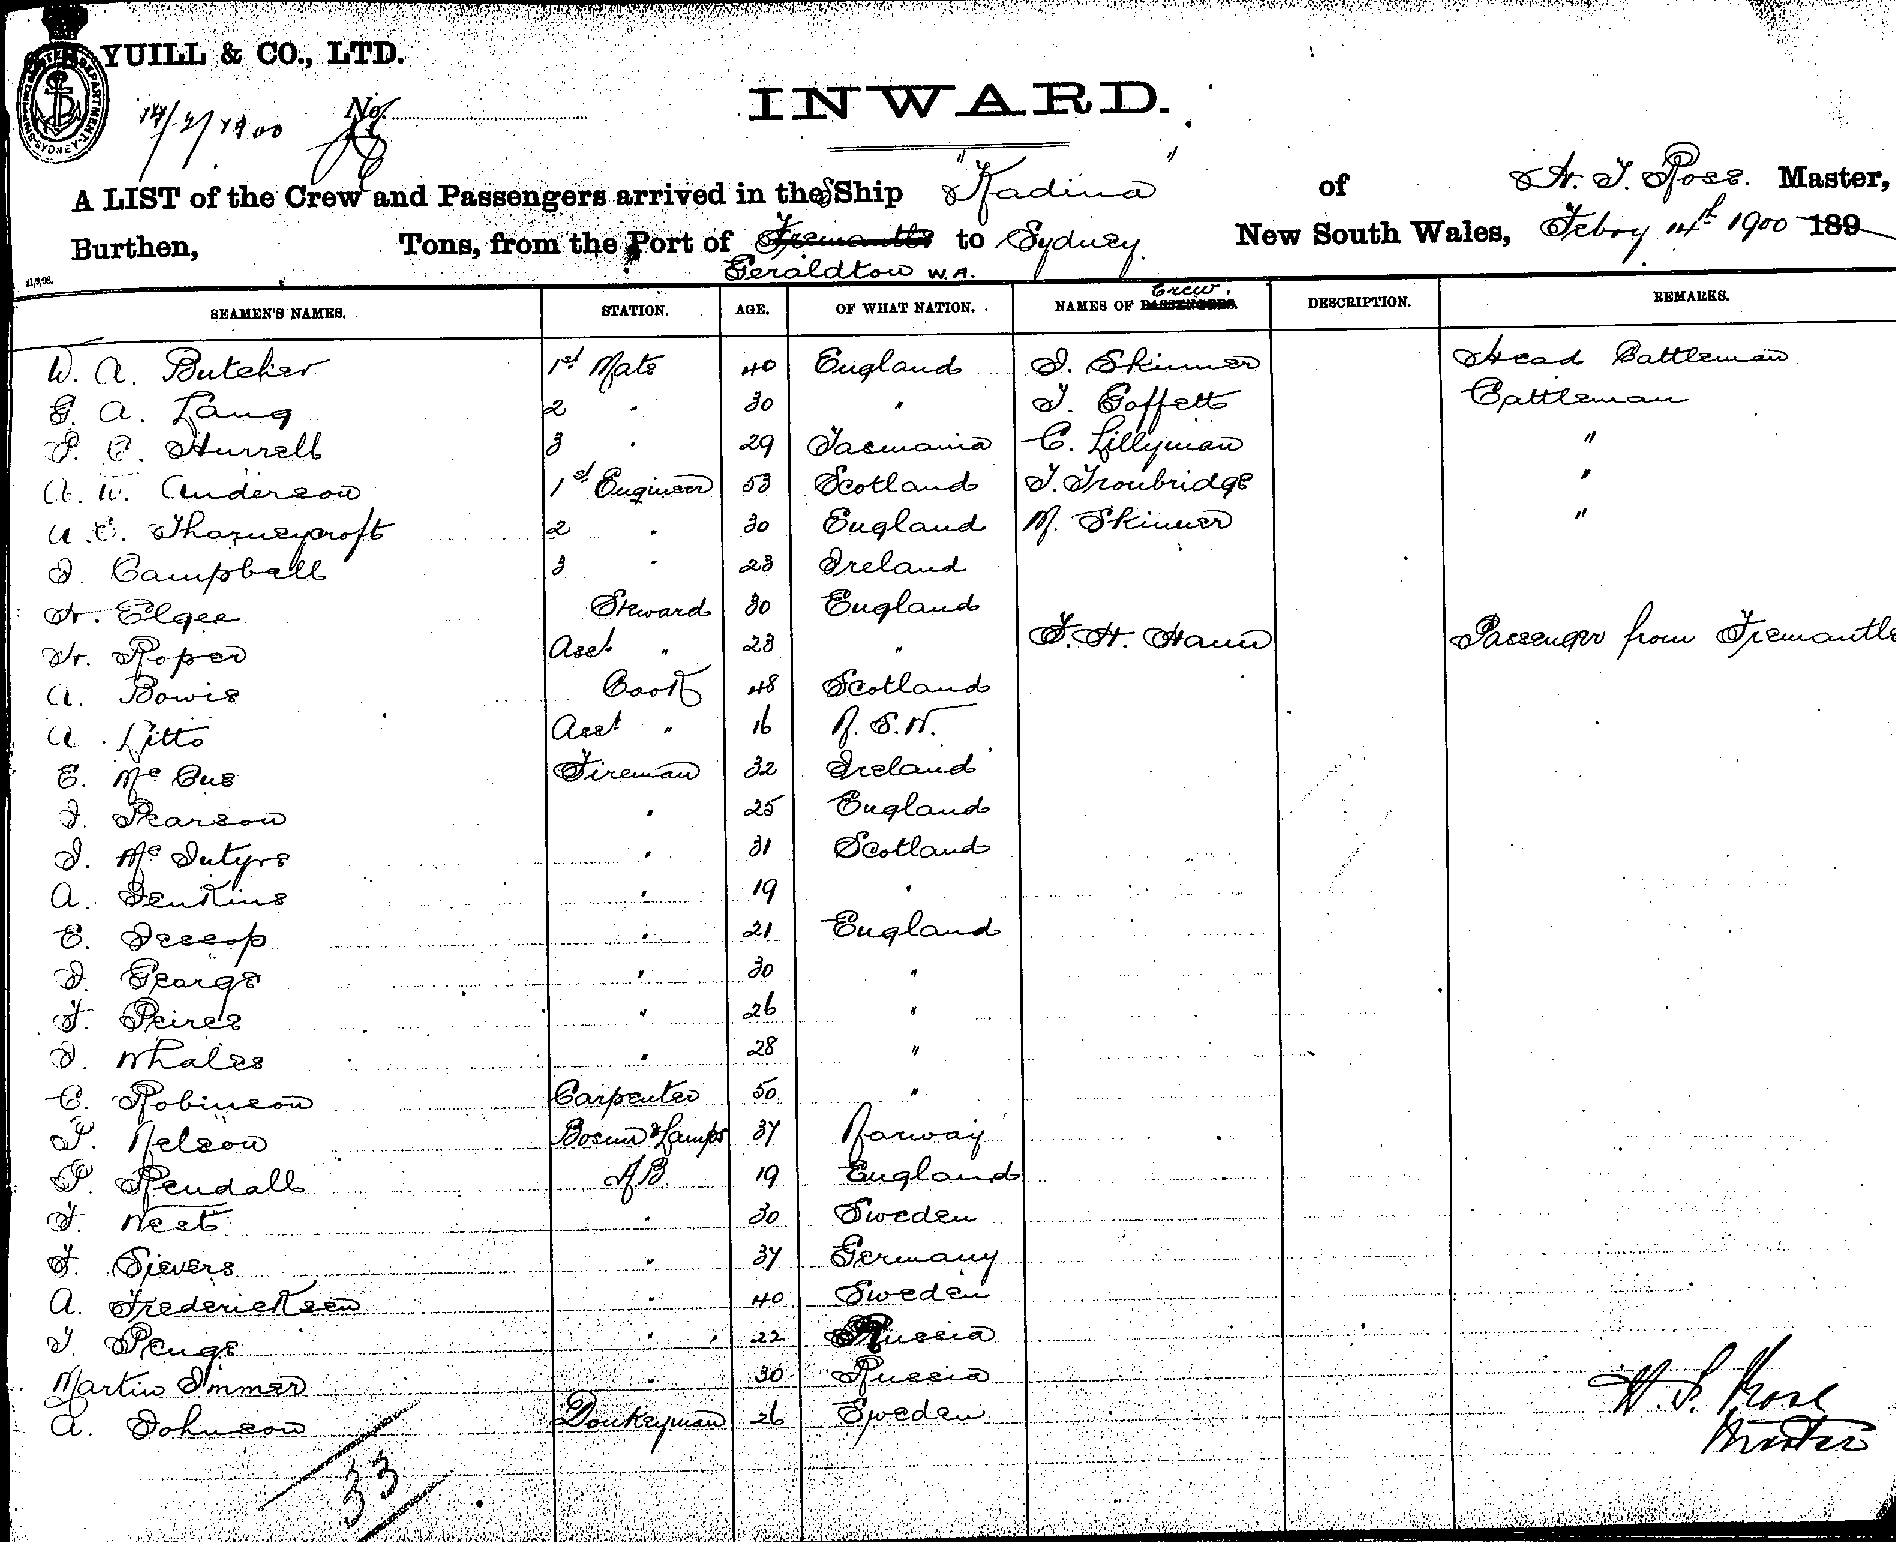 YUILL & CO., LTD.
14/2/1900 No.
INWARD.
A LIST of the Crew and Passengers arrived in the SShip "Kadina" of H. J. Rose. Master,
Burthen, Tons, from the Port of Fremantle to Sydney. New South Wales, Febry 14th 1900 189
Geraldton W.A.
SEAMEN'S NAMES. STATION. AGE. OF WHAT NATION. NAMES OF PASSENGERS Crew. DESCRIPTION. REMARKS.
W. A. Butcher 1st Mate 40 England J. Skinner Head Cattleman
G. A. Lang 2 " 30 " J. Goffett Cattleman
P. C. Hurrell 3 " 29 Tasmania C. Lillyman "
A. W. Anderson 1st Engineer 53 Scotland T. Troubridge "
A. E. Thorneycroft 2 " 30 England M. Skinner "
J. Campbell 3 " 23 Ireland
H. Elgee Steward 30 England
H. Roper Asst " 23 " F. H. Hann Passenger from Fremantle
A. Bowie Cook 48 Scotland
A. Litto Asst " 16 N. S. W.
E. McCue Fireman 32 Ireland
J. Pearson " 25 England
J. McIntyre " 31 Scotland
A. Jenkins " 19 "
E. Jessop " 21 England
J. George " 30 "
F. Peirce " 26 "
J. Whales " 28 "
C. Robinson Carpenter 50 "
P. Nelson Bosun & Lamps 37 Norway
P. Rendall AB. 19 England
F. West " 30 Sweden
F. Sievers " 37 Germany
A. Fredericksen " 40 Sweden
J. Penge " 22 Russia
Martin Immer " 30 Russia
A. Johnson Donkeyman 26 Sweden
33
H. J. Rose
Master